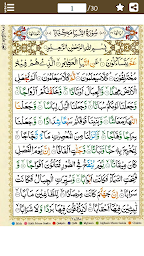 1 /30
سُورَةُ النَّبَإِ مَكِّيَّةٌ
بِسْمِ اللهِ الرَّحْمٰنِ الرَّحِيْمِ
عَمَّ يَتَسَآءَلُوْنَ عَنِ النَّبَإِ الْعَظِيْمِ الَّذِيْ هُمْ فِيْهِ
مُخْتَلِفُوْنَ كَلَّا سَيَعْلَمُوْنَ ثُمَّ كَلَّا سَيَعْلَمُوْنَ اَلَمْ نَجْعَلِ
الْاَرْضَ مِهٰدًا وَّالْجِبَالَ اَوْتَادًا وَّخَلَقْنٰكُمْ اَزْوَاجًا وَّجَعَلْنَا
نَوْمَكُمْ سُبَاتًا وَّجَعَلْنَا الَّيْلَ لِبَاسًا وَّجَعَلْنَا النَّهَارَ
مَعَاشًا وَّبَنَيْنَا فَوْقَكُمْ سَبْعًا شِدَادًا وَّجَعَلْنَا سِرَاجًا
وَّهَّاجًا وَّاَنْزَلْنَا مِنَ الْمُعْصِرٰتِ مَآءً ثَجَّاجًا لِّنُخْرِجَ بِهٖ
حَبًّا وَّنَبَاتًا وَّجَنّٰتٍ اَلْفَافًا اِنَّ يَوْمَ الْفَصْلِ
كَانَ مِيْقَاتًا يَّوْمَ يُنْفَخُ فِي الصُّوْرِ فَتَاْتُوْنَ اَفْوَاجًا وَّفُتِحَتِ
السَّمَآءُ فَكَانَتْ اَبْوَابًا وَّسُيِّرَتِ الْجِبَالُ فَكَانَتْ سَرَابًا
اِنَّ جَهَنَّمَ كَانَتْ مِرْصَادًا لِّلطَّاغِيْنَ مَاٰبًا لّٰبِثِيْنَ
فِيْهَآ اَحْقَابًا لَا يَذُوْقُوْنَ فِيْهَا بَرْدًا وَّلَا شَرَابًا اِلَّا